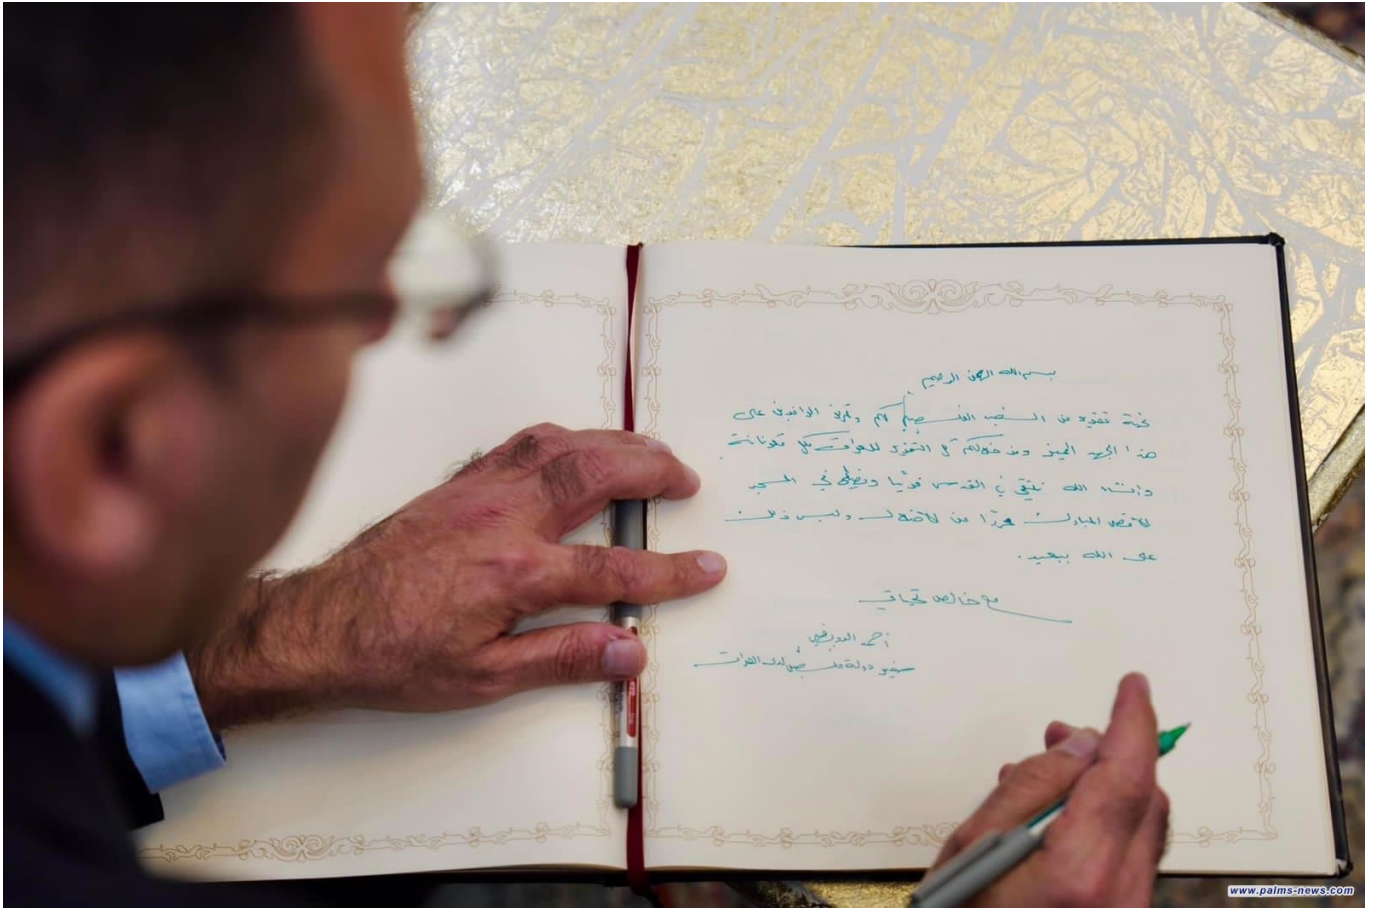 بسم الله الرحمن الرحيم
تحية تقدير من الشعب الفلسطيني لكم ولكل القائمين على
هذا الجهد المميز ومن خلالكم كل التقدير للعراق بكل مكوناته
وإنشاء الله نلتقي في القدس قريبا ونصلي في المسجد
الأقصى المبارك محررا من الاحتلال وليس ذلك
على الله ببعيد.
مع خالص تحياتي
أحمد
سفير دولة فلسطين لدى العراق
www.palms-news.com